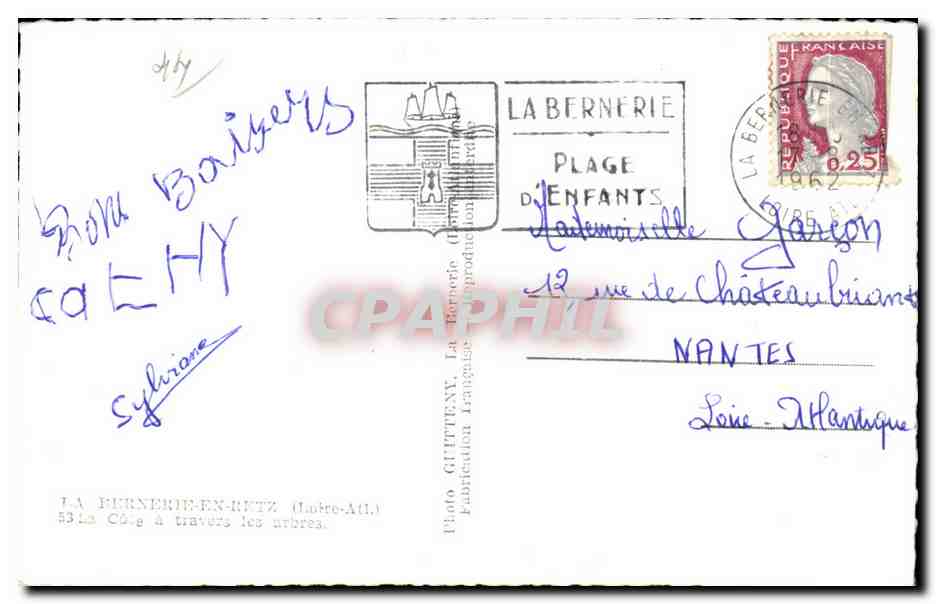 44
Bons Baisers
CATHY
Sylviane
LA BERNERIE-EN-RETZ (Loire-Atl.)
53 La Côte à travers les arbres.
Photo GUITTENY, La Bernerie (Loire-Atlantique)
Fabrication Française - Reproduction interdite
LA BERNERIE
PLAGE
D'ENFANTS
REPUBLIQUE FRANÇAISE
0,25
LA BERNERIE EN
1962
LOIRE ATL
Mademoiselle Garçon
12 rue de Châteaubriant
NANTES
Loire-Atlantique
CPAPHIL